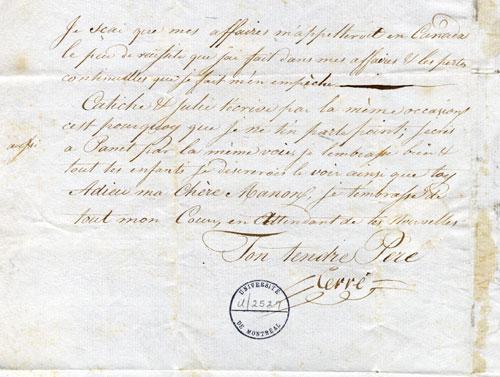 Je scai que mes affaires m'appelleroit en Canada
le peu de reüssite que j'ai fait dans mes affaires & les pertes
continuelles que je fait m'en empêche
Catiche & Julie t'écrive par la même occasion
c'est pourquoy que je ne t'en parle point, j'ecris
aussi
a Panet par la même voie, je l'embrasse bien &
tout tes enfants je desirerois le voir ainsi que toy
Adieu ma Chère Manon, je t'embrasse de
tout mon Coeur, en Attendant de tes Nouvelles
Ton tendre Père
Cerré
UNIVERSITÉ
U/2527
DE MONTRÉAL